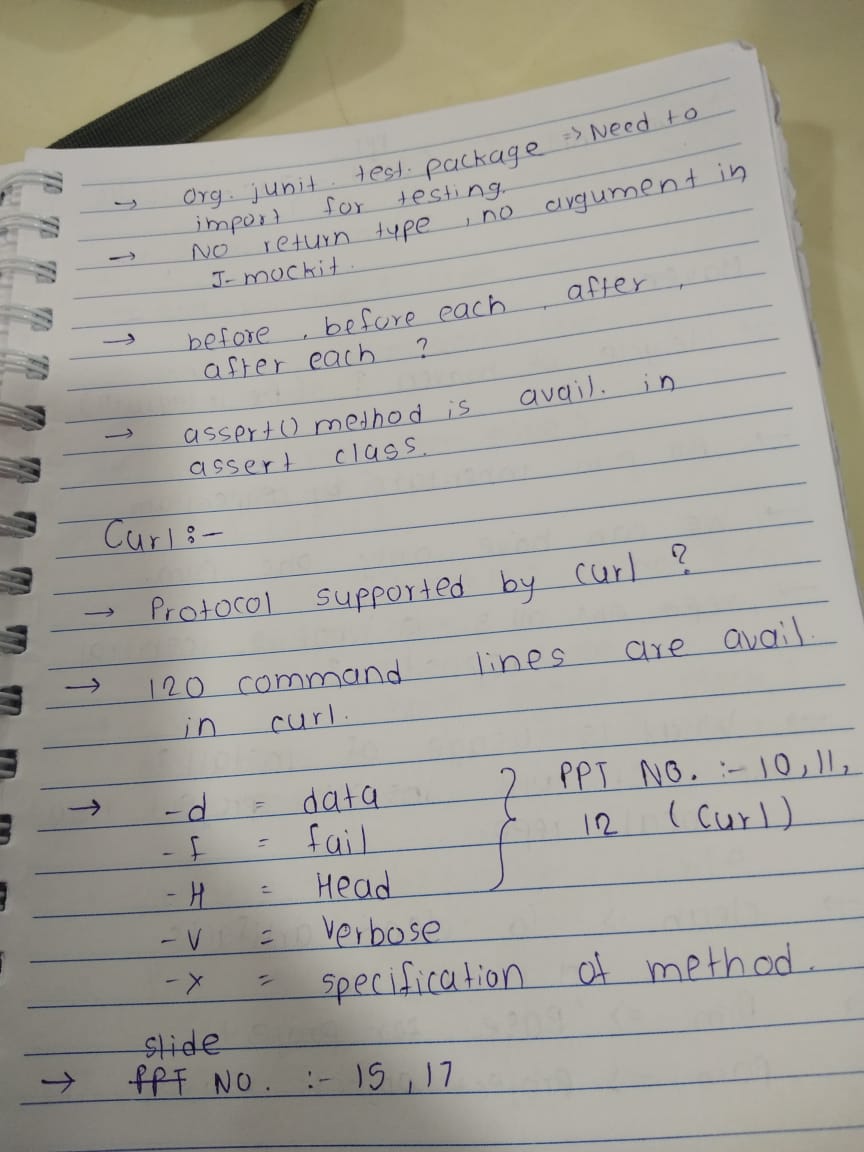 → org. junit. test. package ⇒ Need to
import for testing.
→ No return type, no argument in
J-mockit.
→ before, before each, after,
after each ?
→ assert() method is avail. in
assert class.
Curl :-
→ Protocol supported by curl ?
→ 120 command lines are avail.
in curl.
→ -d = data } PPT NO. :- 10, 11,
-f = fail 12 (Curl)
-H = Head
-v = verbose
-x = specification of method.
slide
→ PPT NO. :- 15, 17